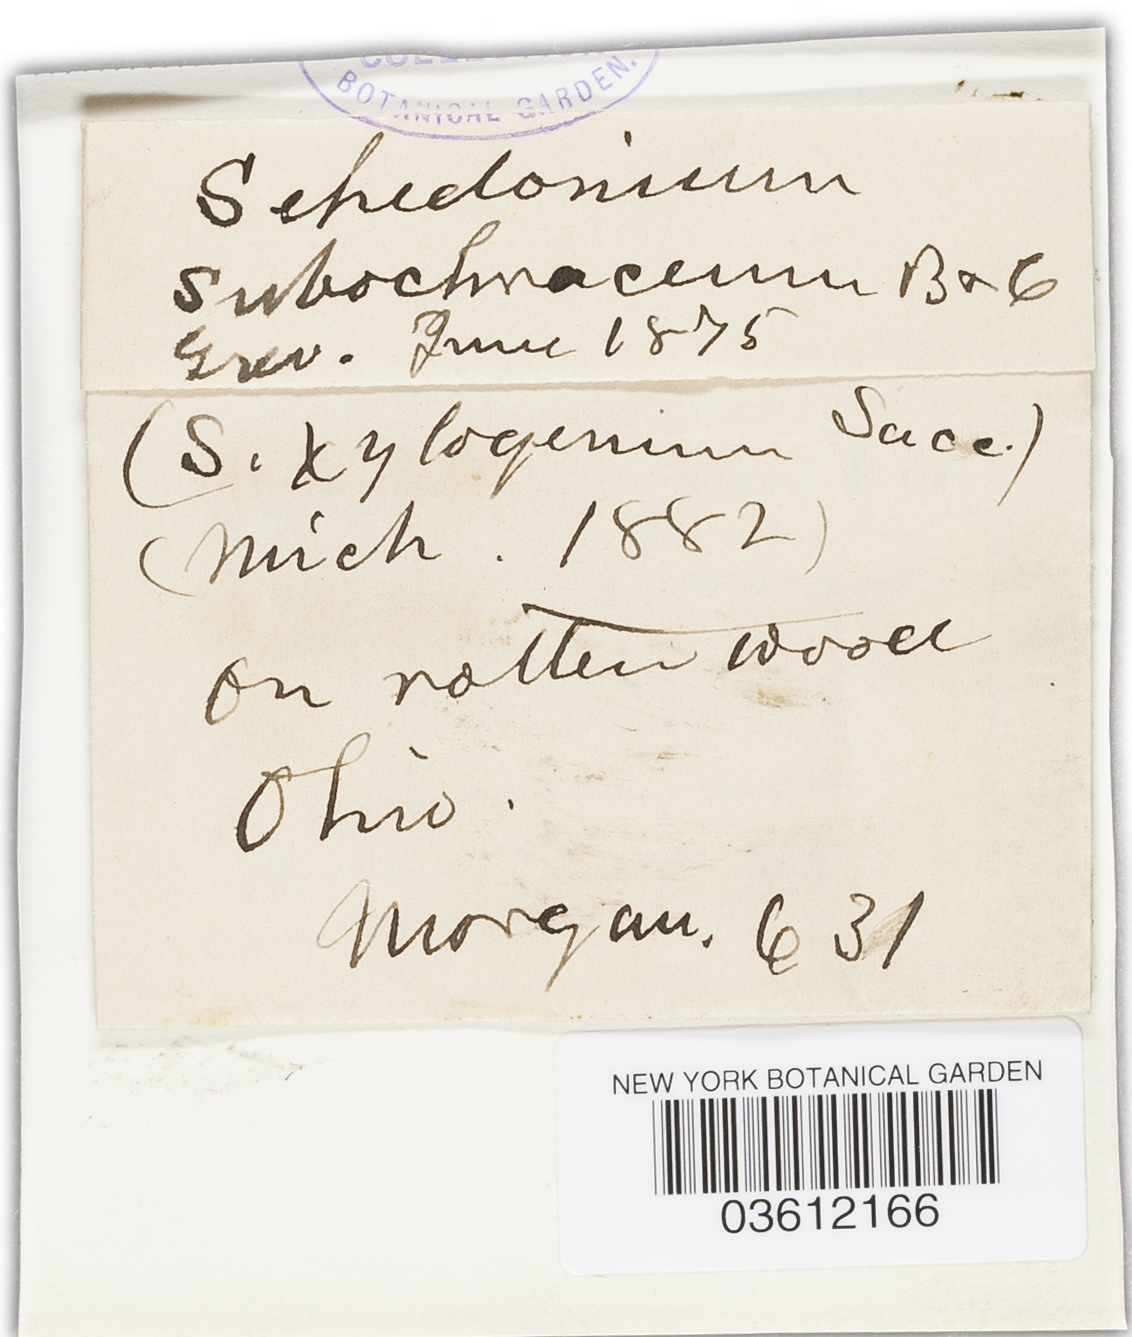 BOTANICAL GARDEN.
Sepedonium
subochraceum B & C
Grev. June 1875
(S. Xylogenum Sacc.)
(Mich. 1882)
on rotten wood
Ohio.
Morgan. 631
NEW YORK BOTANICAL GARDEN
03612166